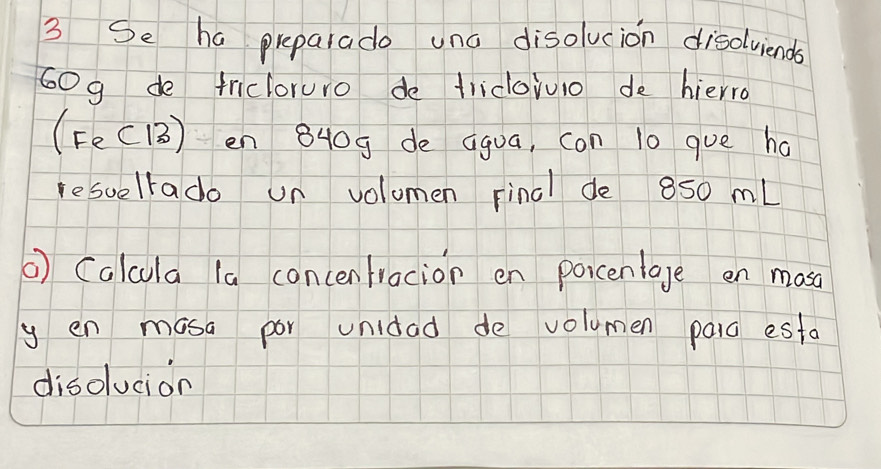 3 Se ha preparado una disolución disolviendo
60g de tricloruro de tricloruro de hierro
(FeCl3) en 840g de agua, con lo que ha
resueltado un volumen Final de 850 mL
a) Calcula la concentración en porcentaje en masa
y en masa por unidad de volumen para esta
disolución